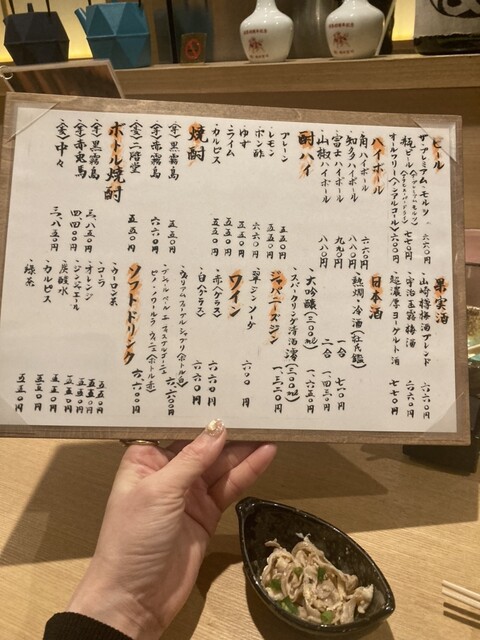 ビール
ザ・プレミアム・モルツ 六六〇円
オールフリー(ノンアルコール) 六〇〇円
ハイボール
角ハイボール
知多ハイボール
富士ハイボール
山椒ハイボール 八八〇円
酎ハイ
プレーン 五五〇円
・レモン 五五〇円
・ポン酢 六六〇円
・ゆず 五五〇円
・ライム 五五〇円
・カルピス 五五〇円
焼酎
(芋)黒霧島 五五〇円
(芋)赤霧島 六六〇円
(麦)二階堂 五五〇円
ボトル焼酎
(芋)黒霧島 三、八五〇円
(芋)赤兎馬 四、四〇〇円
(麦)中々 三、八五〇円
果実酒
・山崎梅酒ブレンド
・宇治玉露梅酒 六六〇円
・超濃厚ヨーグルト酒 七七〇円
日本酒
熱燗・冷酒
一合 七一〇円
二合 一、四三〇円
・大吟醸(三〇〇ml) 一、六五〇円
・スパークリング清酒 澪(三〇〇ml) 一、三二〇円
ジャパニーズジン
・翠ジンソーダ 六〇〇円
ワイン
・赤(グラス) 六六〇円
・白(グラス) 六六〇円
ソフトドリンク
・ウーロン茶 五五〇円
・コーラ 五五〇円
・オレンジ 五五〇円
・ジンジャエール 五五〇円
・炭酸水 五五〇円
・カルピス 五五〇円
・緑茶 五五〇円